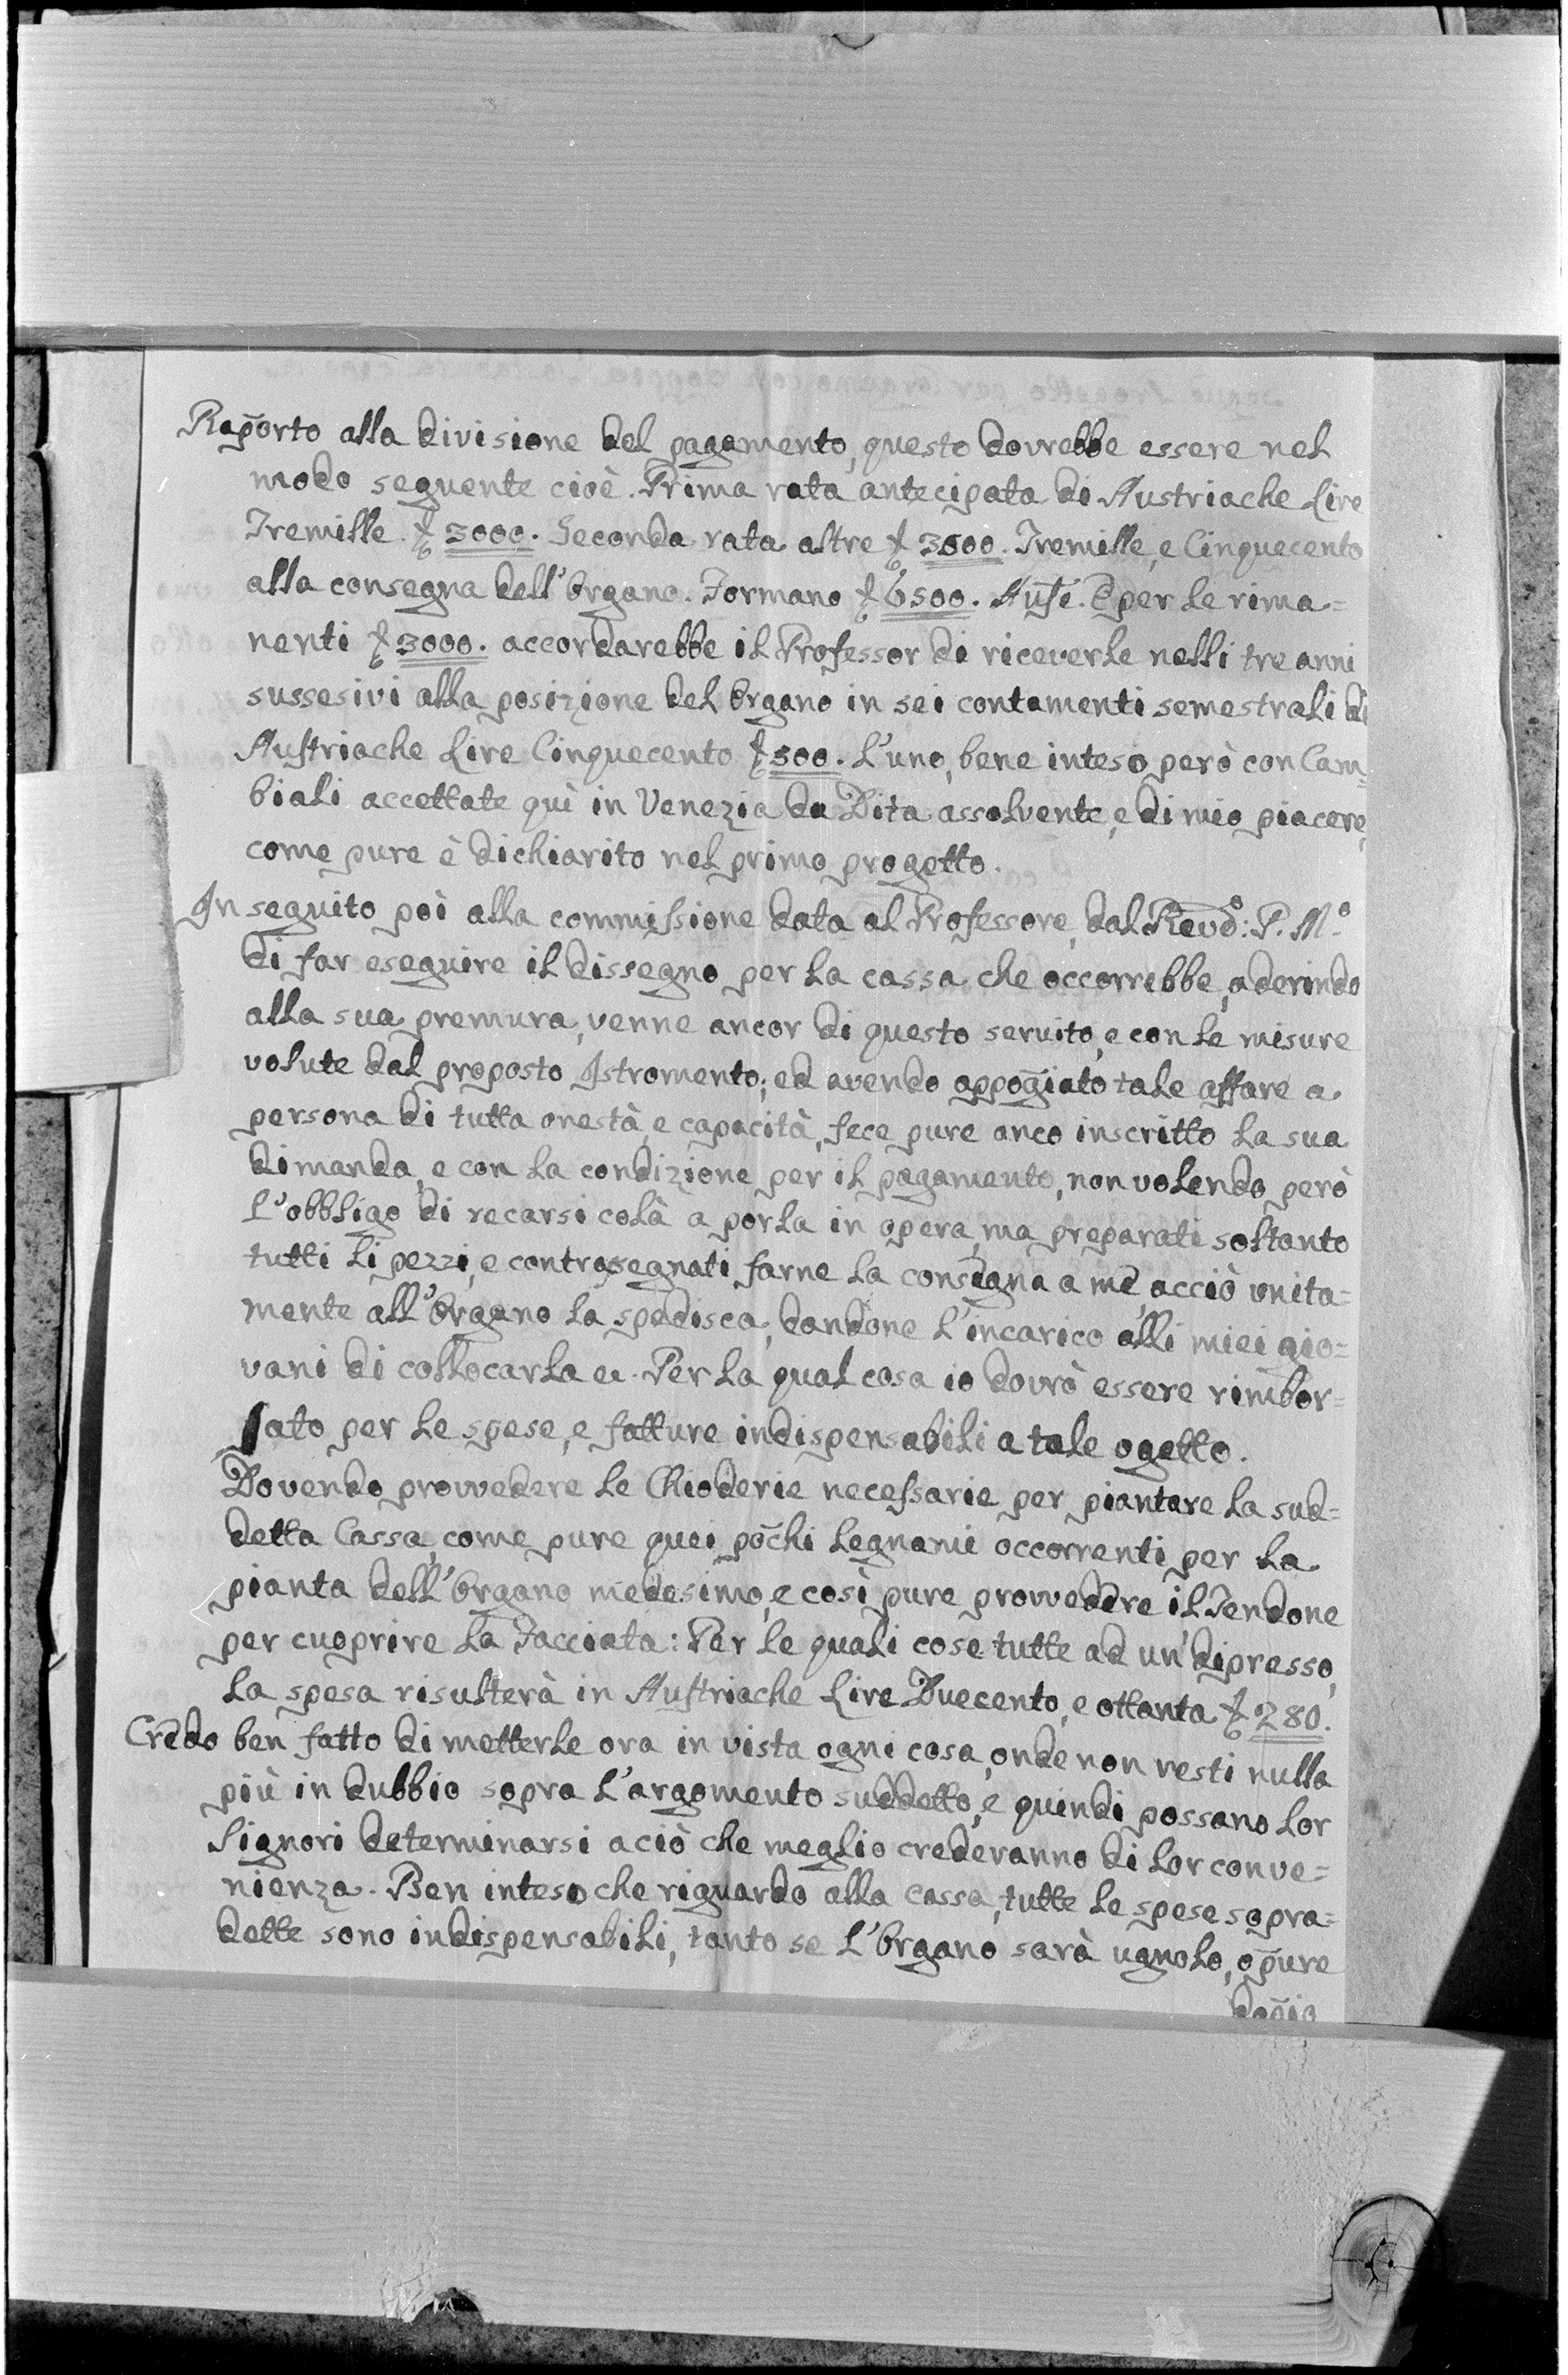 Rap̄orto alla divisione del pagamento, questo dovrebbe essere nel
modo seguente cioè. Prima rata antecipata di Austriache Lire
Tremille £ 3000. Seconda rata altre £ 3500. Tremille, e Cinquecento
alla consegna dell'Organo. Formano £ 6500. Auſe. E per le rima=
nenti £ 3000. accordarebbe il Professor di riceverle nelli tre anni
sussesivi alla posizione del Organo in sei contamenti semestrali di
Auſtriache Lire Cinquecento £ 500. L'uno, bene inteso però con Cam=
biali accettate quì in Venezia da Dita assolvente, e di mio piacere,
come pure è dichiarito nel primo progetto.
In seguito poi alla commiſsione data al Professore, dal Revdo: P. Mo
di far eseguire il dissegno per la cassa che occorrebbe, aderindo
alla sua premura, venne ancor di questo servito, e con le misure
volute dal proposto Istromento; ed avendo appoḡiato tale affare a
persona di tutta onestà, e capacità, fece pure anco inscritto la sua
dimanda, e con la condizione per il pagamento, non volendo però
l'obbligo di recarsi colà a porla in opera, ma preparati soltanto
tutti li pezzi, e contrasegnati farne la consegna a mè, acciò unita=
mente all'Organo la spedisca, dandone l'incarico alli miei gio=
vani di collocarla ec. Per la qual cosa io dovrò essere rimbor=
sato per le spese, e fatture indispensabili a tale ogetto.
Dovendo provvedere le Chioderie neceſsarie per piantare la sud=
detta Cassa, come pure quei pochi legnami occorrenti per la
pianta dell'Organo medesimo, e così pure provvedere il Tendone
per cuoprire la Facciata: Per le quali cose tutte ad un'dipresso,
la spesa risulterà in Auſtriache Lire Duecento, e ottanta £ 280.
Credo ben fatto di metterle ora in vista ogni cosa, onde non resti nulla
più in dubbio sopra l'argomento suddetto, e quindi possano lor
Signori determinarsi a ciò che meglio crederanno di lor conve=
nienza. Ben inteso che riguardo alla cassa, tutte le spese sopra=
dette sono indispensabili, tanto se l'Organo sarà ugnolo, op̄ure
dop̄io